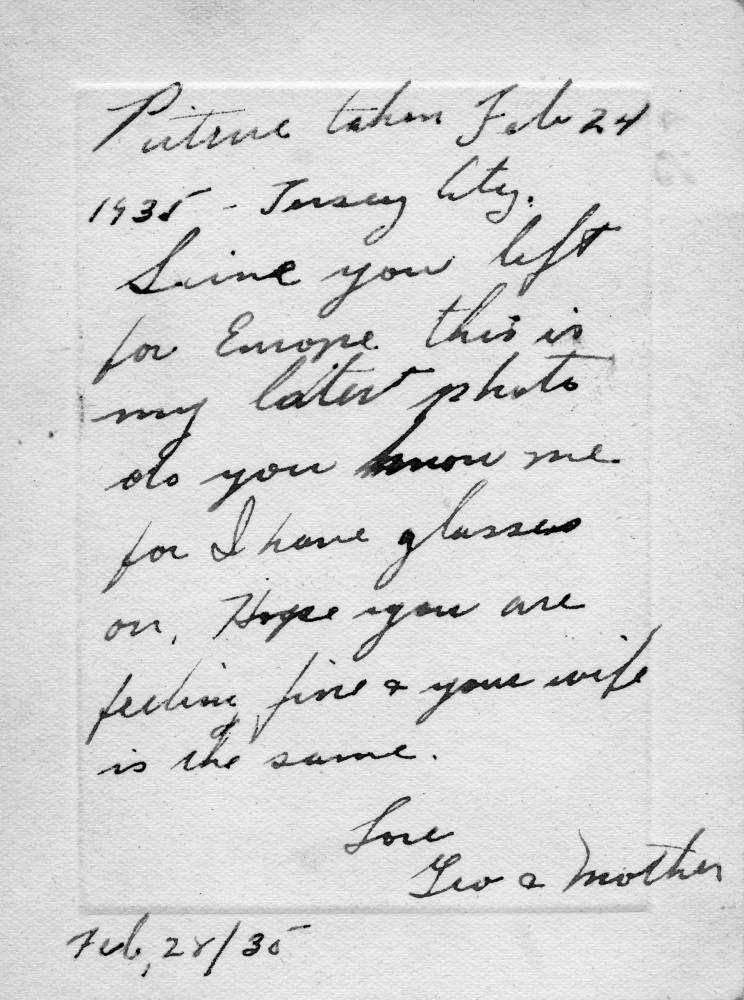 Picture taken Feb 24
1935 - Jersey City.
Since you left
for Europe this is
my latest photo
do you know me
for I have glasses
on, Hope you are
feeling fine & your wife
is the same.
Love
Geo & Mother
Feb, 28/35